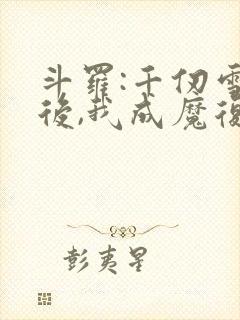 斗羅:千仞雪
後,我成魔後
彭夷星